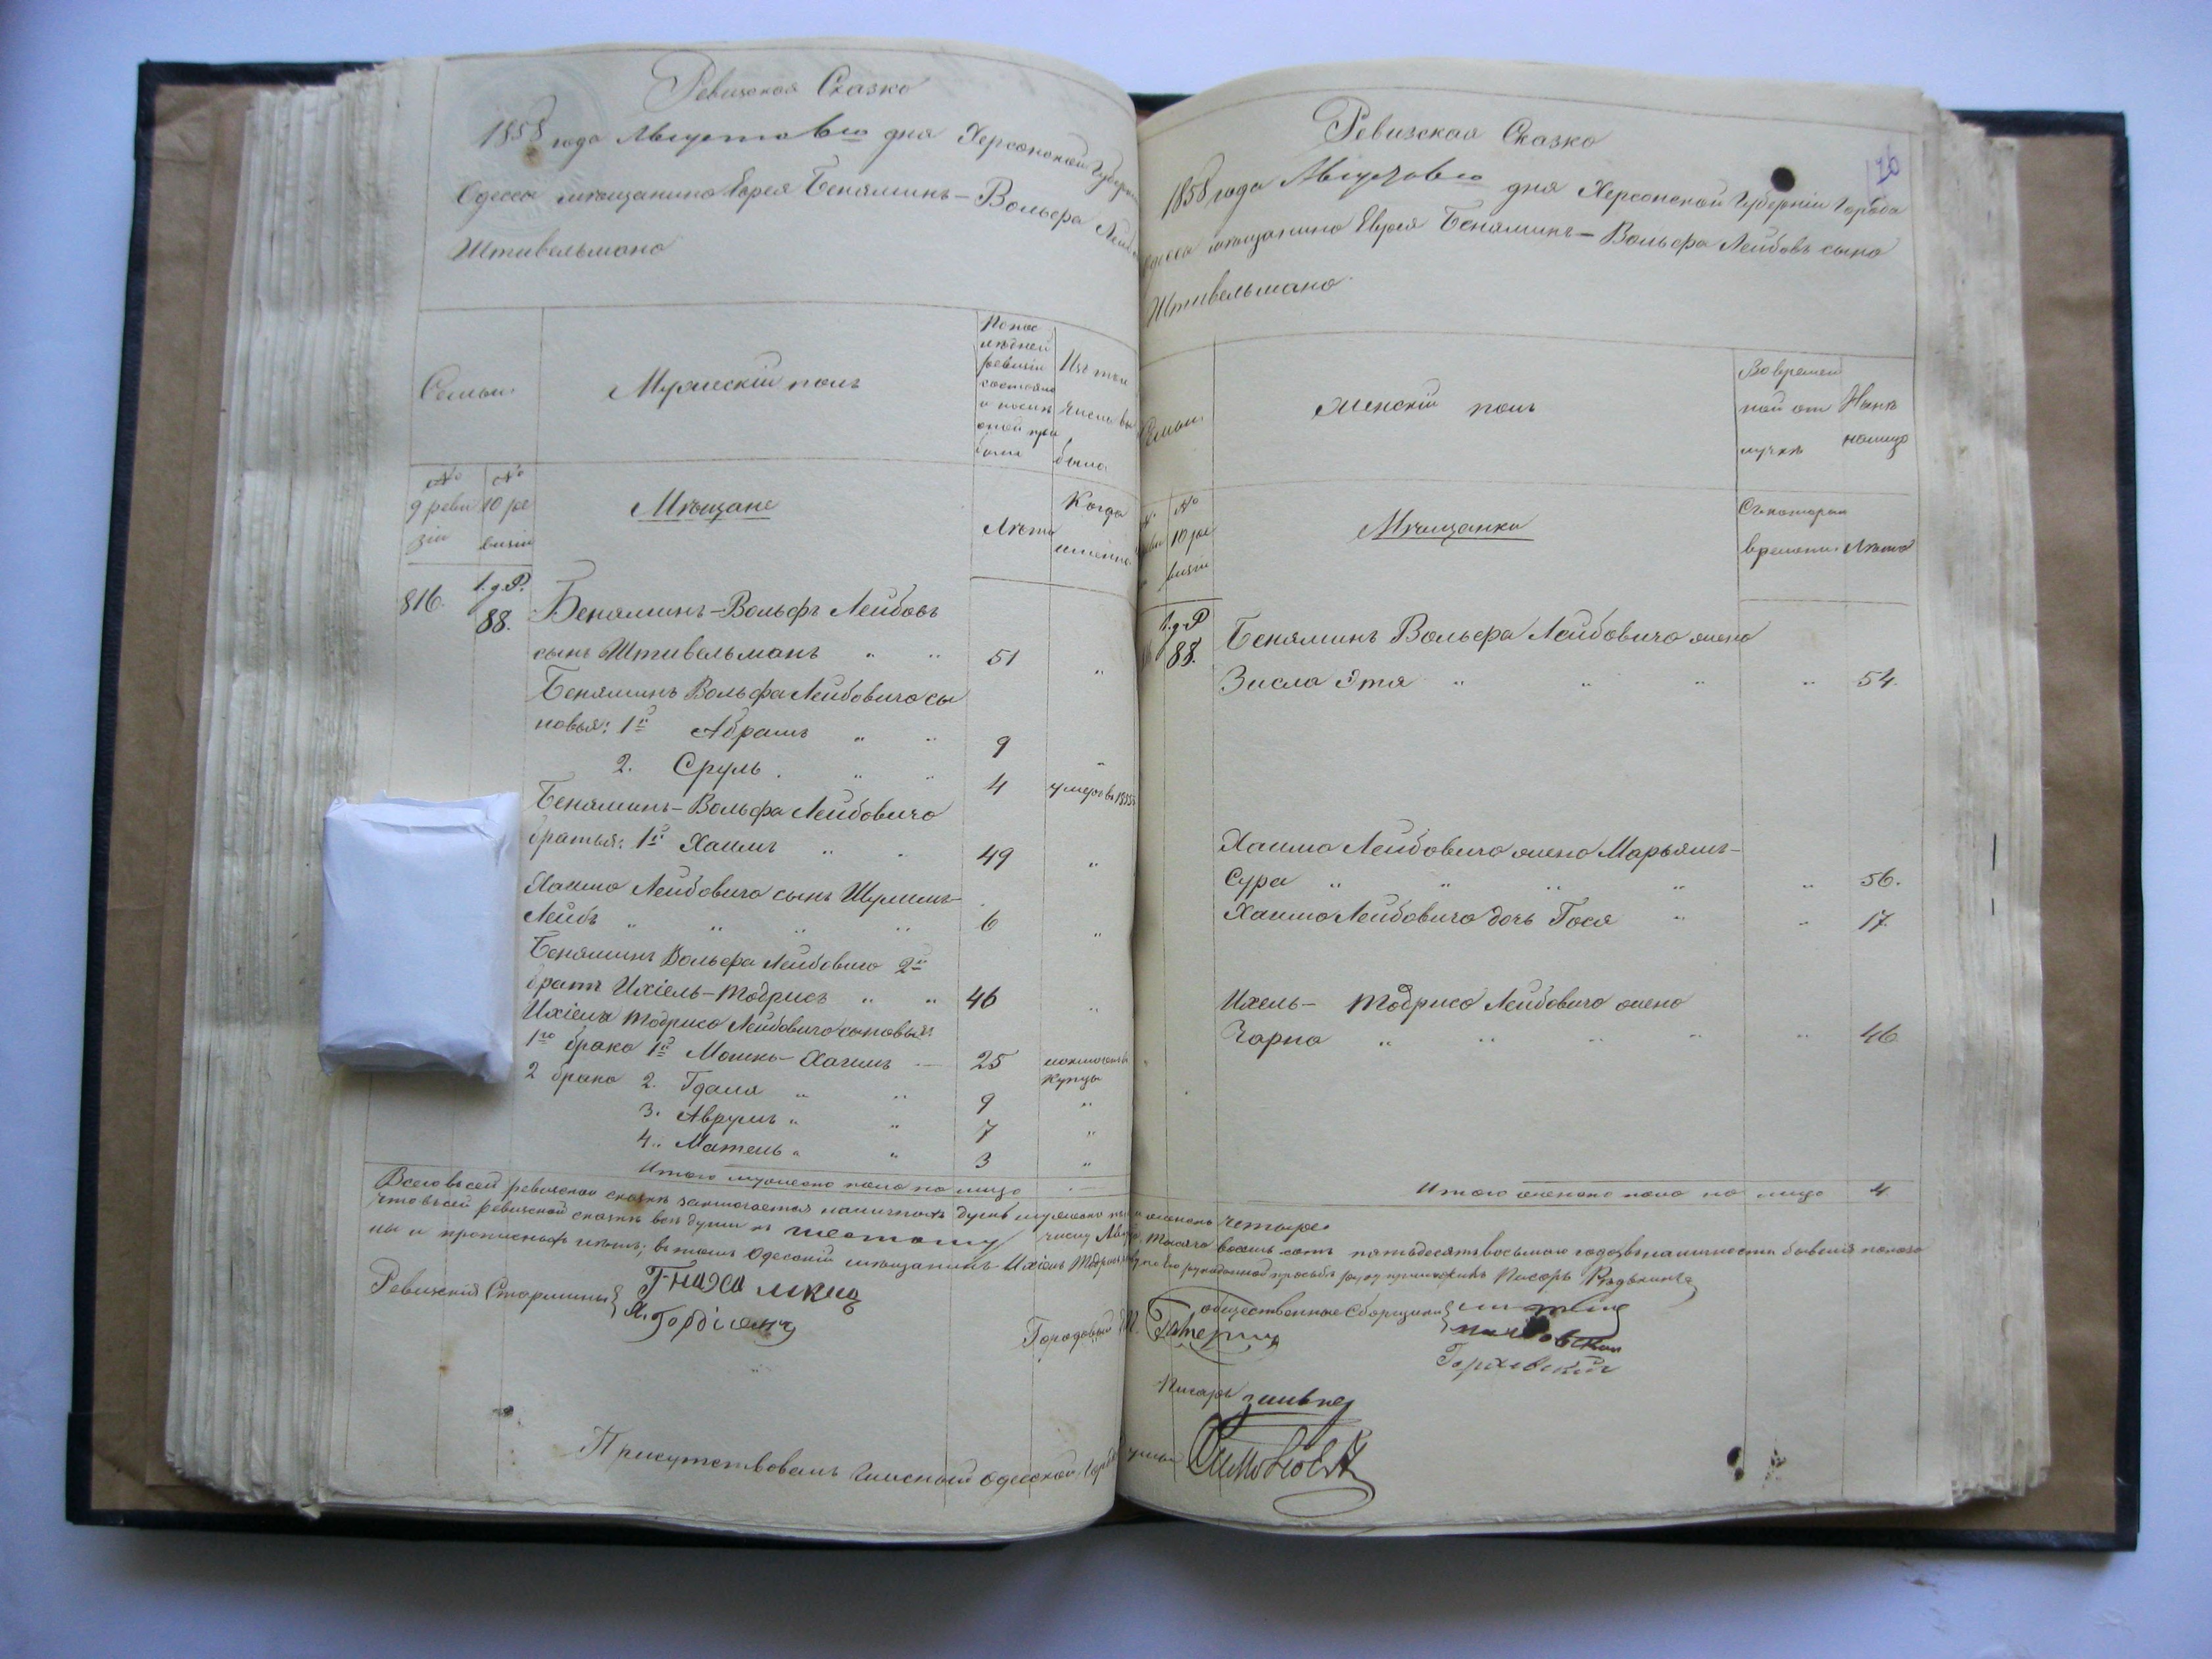 Ревизская Сказка
1858 года Августа 6го дня Херсонской Губерн
Одессы мѣщанина Еврея Беняминъ-Вольфа Лейб
Штивельмана
Семьи
Мужескій полъ
По пос
лѣдней
ревизіи
состояло
и послѣ
оной при
было
Изъ того
числа вы
было
№
9 реви
зіи
№
10 ре
визіи
Мѣщане
Лѣта
Когда
именно
816.
1.g.P.
88.
Беняминъ-Вольфъ Лейбовъ
сынъ Штивельманъ " " 51 "
Беняминъ Вольфа Лейбовича сы
новья: 1й Абрамъ " " 9 "
2. Сруль. " " 4 умеръ в 1855
Беняминъ-Вольфа Лейбовича
братья: 1й Хаимъ " " 49 "
Хаима Лейбовича сынъ Шулимъ-
Лейбъ " " " " 6 "
Беняминъ Вольфа Лейбовича 2й
братъ Ихіель-Тодрисъ " " 46 "
Ихіель Тодриса Лейбовича сыновья:
1го брака 1й Мошко-Хаимъ — 25
купцы
2 брака 2. Гдаля " " 9 "
3. Аврумъ " " 7 "
4. Матель " " 3 "
Итого мужеска пола на лицо
Ревизская Сказка
1858 года Августа 6го дня Херсонской Губерніи Города
Одессы мѣщанина Еврея Беняминъ-Вольфа Лейбовъ сына
Штивельмана
Семьи
Женскій полъ
Во времен
ной от
лучкѣ
Нынѣ
налицо
№
10 ре
визіи
Мѣщанки
Съ котораго
времени
Лѣта
1.g.P
88.
Беняминъ Вольфа Лейбовича жена
Зисла Этя " " " " 54.
Хаима Лейбовича жена Марьямъ-
Сура " " " " " 56.
Хаима Лейбовича дочь Гося " " 17.
Ихель- Тодриса Лейбовича жена
Чарна " " " " " 46.
Итого женска пола на лицо 4
Всего въ сей ревизской сказкѣ заключается наличныхъ душъ мужеска женска четыре.
что въ сей ревизской сказкѣ всѣ души къ шестому числу Августа тысяча восемь сотъ пятьдесятъ восьмаго года въ наличности бывшія показа
ны и прописныхъ нѣтъ; въ томъ Одесскій мѣщанинъ Ихіель Тодрисъ Писарь
Ревизскіе Старшины
Я. Гордіевичъ
Городовый
общественные сборщики
Горжевскій
Писарь
Присутствовалъ Гласный Одесской Город Думы